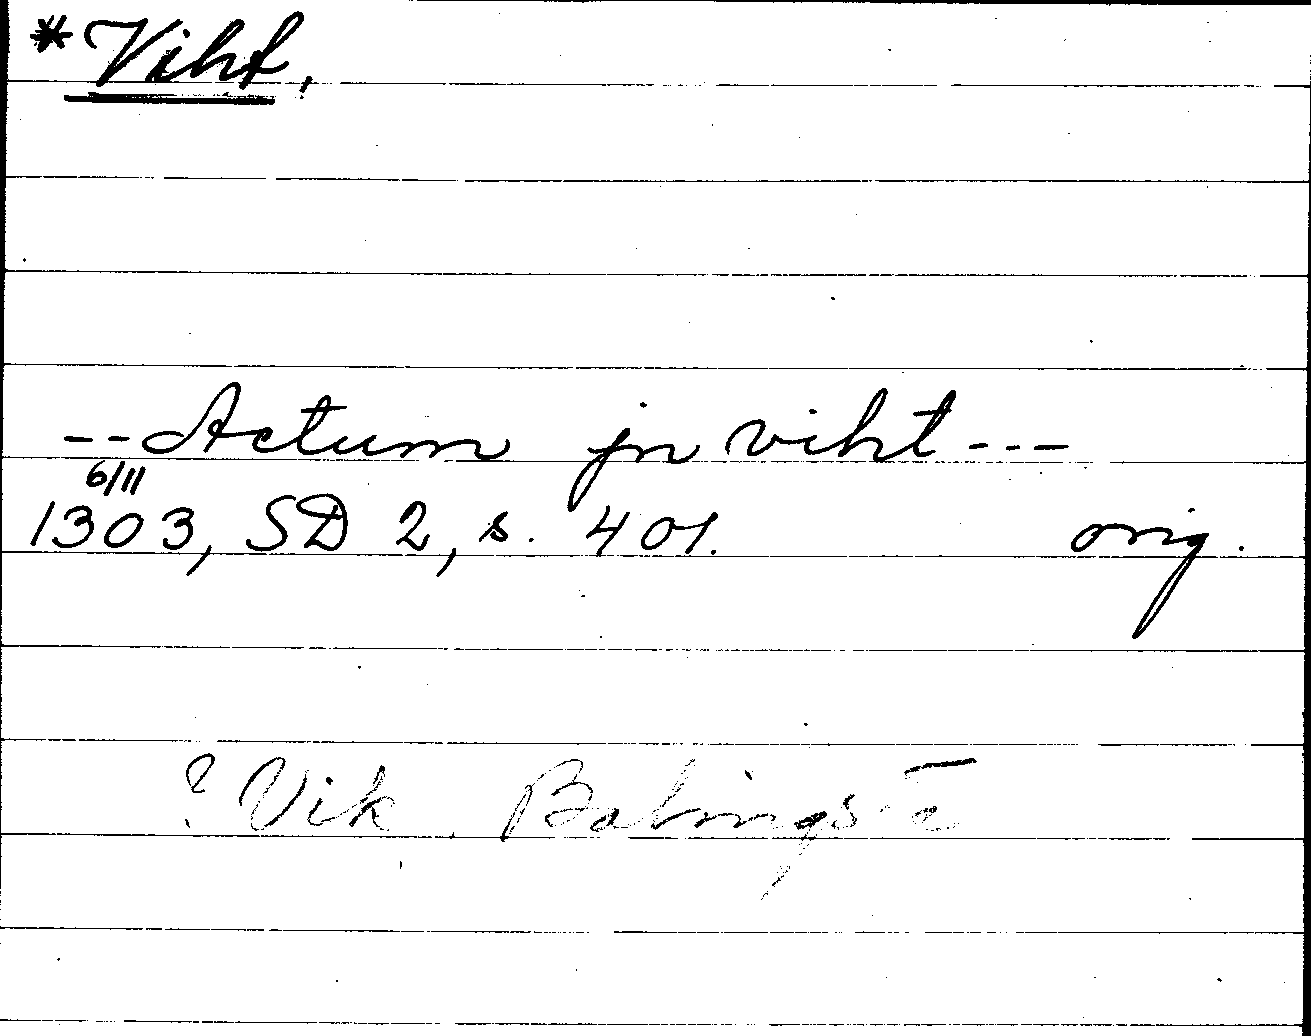 *Viht.
--Actum jn viht---
6/11
1303, SD 2, s. 401. orig.
? Vik. Balingsta